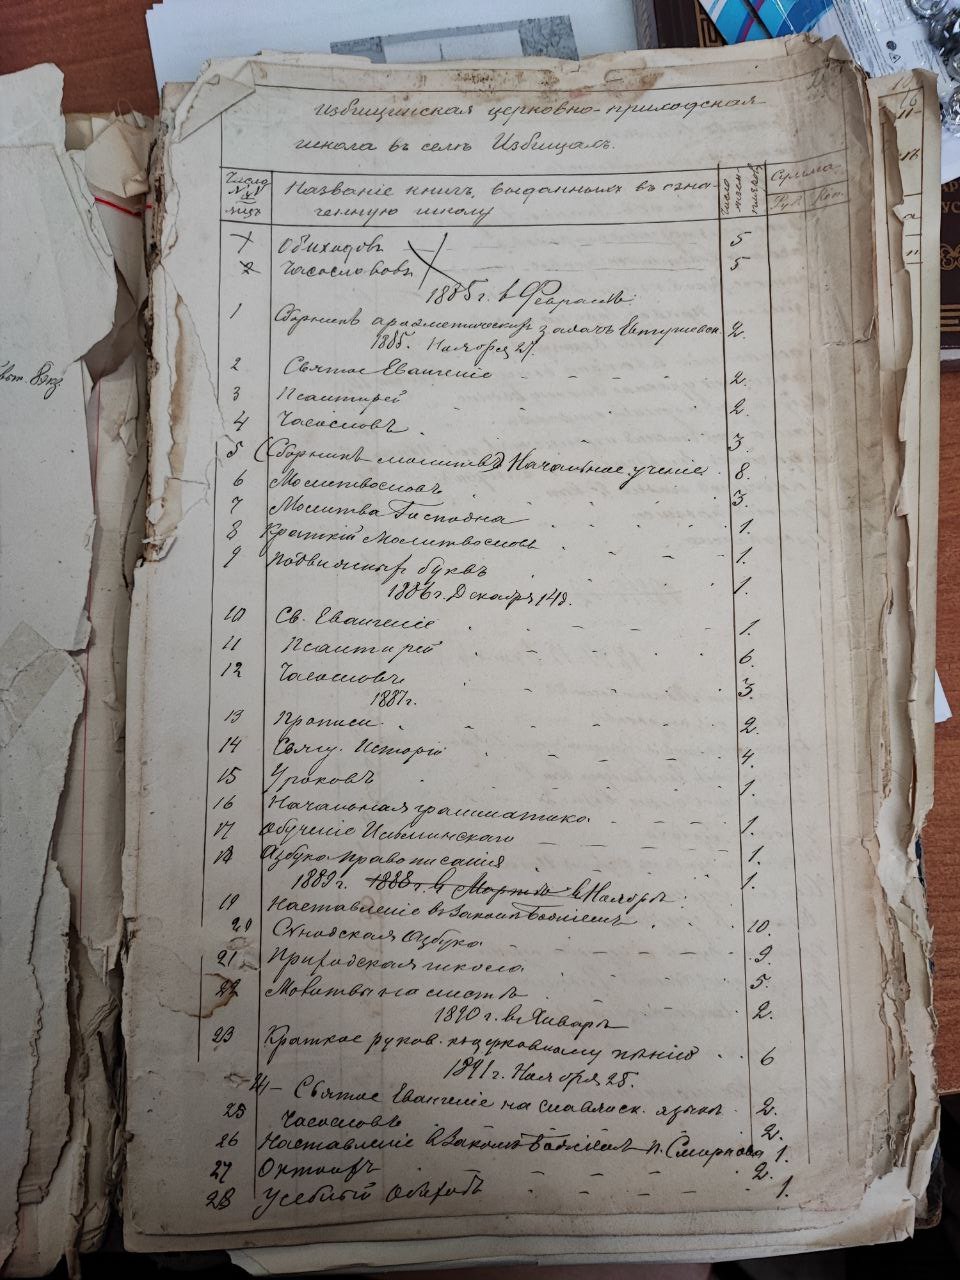 Избищинская церковно-приходская
школа въ селѣ Избищахъ.
Число №№ книгъ Названіе книгъ, выданныхъ въ озна-
ченную школу Число экземпляровъ Сумма. Руб. Коп.
1 Обиходовъ 5
2 Часослововъ 5
1885 г. въ Февралѣ.
1 Сборникъ ариөметическихъ задачъ Евтушевск. 2.
1885. Ноября 21.
2 Святое Евангеліе 2.
3 Псалтирей 2.
4 Часословъ 3.
5 Сборникъ молитвъ Начальное ученіе. 8.
6 Молитвословъ 3.
7 Молитва Господня 1.
8 Краткій Молитвословъ 1.
9 Подвижныхъ буквъ 1.
1886 г. Декабря 14 д.
10 Св. Евангеліе 1.
11 Псалтирей 6.
12 Часословъ 3.
1887 г.
13 Прописи 2.
14 Свящ. Исторій 4.
15 Уроковъ 1.
16 Начальная грамматика 1.
17 Обученіе Ильминскаго 1.
18 Азбука правописанія 1.
1889 г. 1888 г. въ Мартѣ въ Ноябрѣ
19 Наставленіе въ Законѣ Божіемъ 10.
20 Сѵнодская азбука 9.
21 Приходская школа 5.
22 Молитвы на листѣ 2.
1890 г. въ Январѣ
23 Краткое руков. къ церковному пѣнію 6
1891 г. Ноября 25.
24 Святое Евангеліе на славянск. языкѣ 2.
25 Часословъ 2.
26 Наставленіе въ Законѣ Божіемъ п. Смирнова 1.
27 Октоихъ 2.
28 Учебный Обиходъ 1.